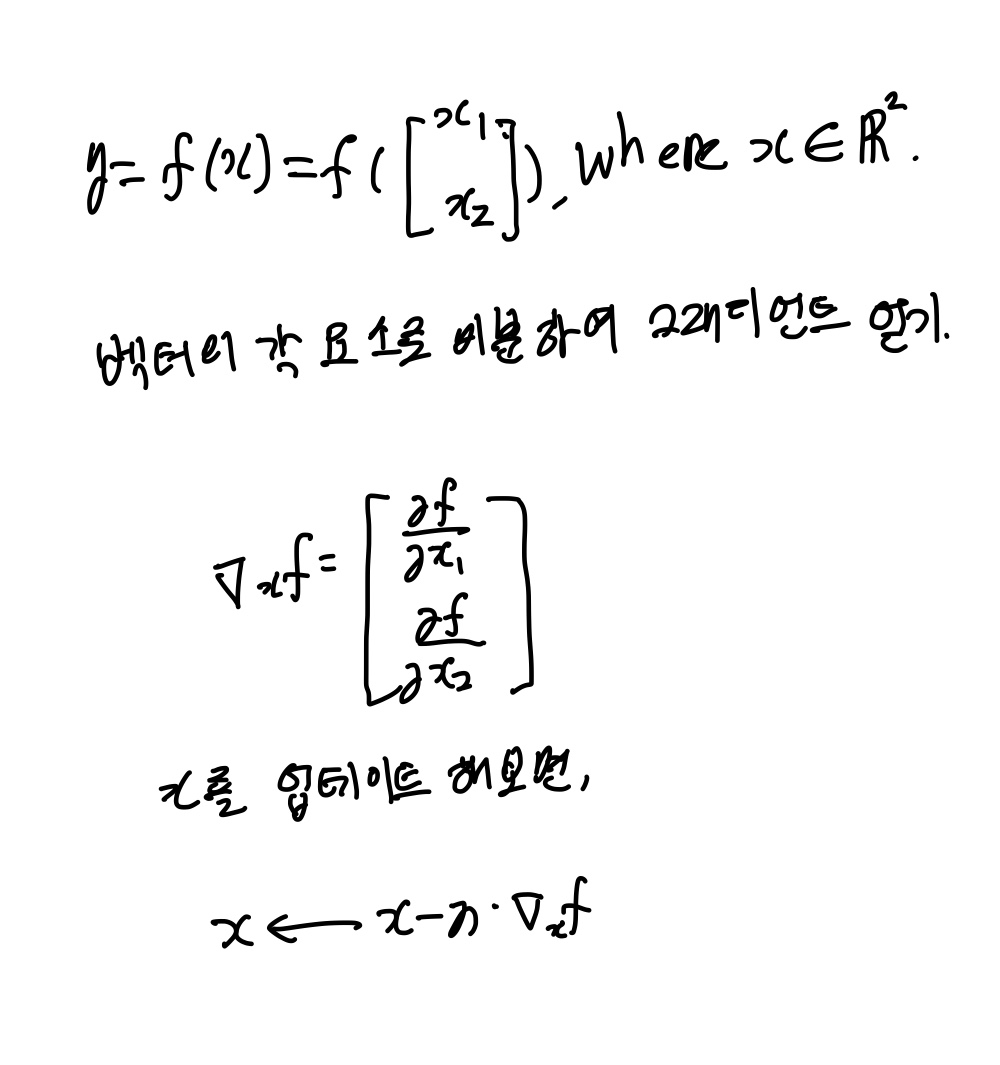 y = f(x) = f([x₁; x₂]), where x ∈ ℝ².
벡터의 각 요소를 미분하여 그래디언트 얻기.
∇ₓf = [∂f/∂x₁; ∂f/∂x₂]
x를 업데이트 해보면,
x ← x − η · ∇ₓf